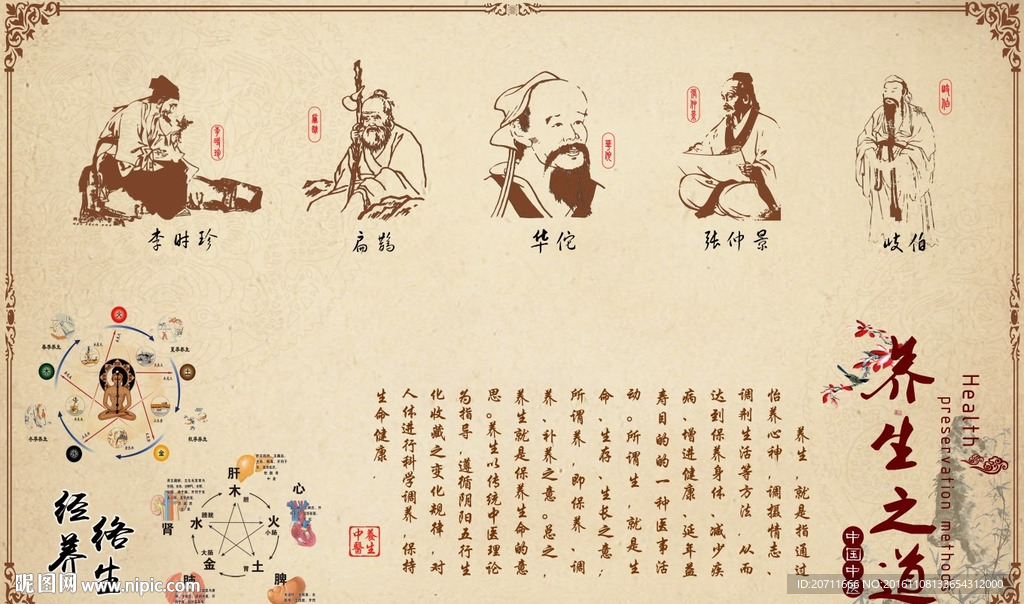 李时珍
扁鹊
华佗
张仲景
岐伯
李时珍
扁鹊
华佗
张仲景
岐伯
养生之道
Health
preservation methods
中国中医
养生，就是指通过
怡养心神，调摄情志、
调剂生活等方法，从而
达到保养身体、减少疾
病、增进健康、延年益
寿目的的一种医事活
动。所谓生，就是生
命、生存、生长之意；
所谓养，即保养、调
养、补养之意。总之，
养生就是保养生命的意
思。养生以传统中医理论
为指导，遵循阴阳五行生
化收藏之变化规律，对
人体进行科学调养，保持
生命健康.
养生
中醫
春季养生
夏季养生
秋季养生
冬季养生
火
土
金
水
木
经络
养生
肝
木
胆
心
火
小肠
脾
土
胃
肺
金
大肠
肾
水
膀胱
昵图网 www.nipic.com
ID:20711666 NO:20161108133654312000